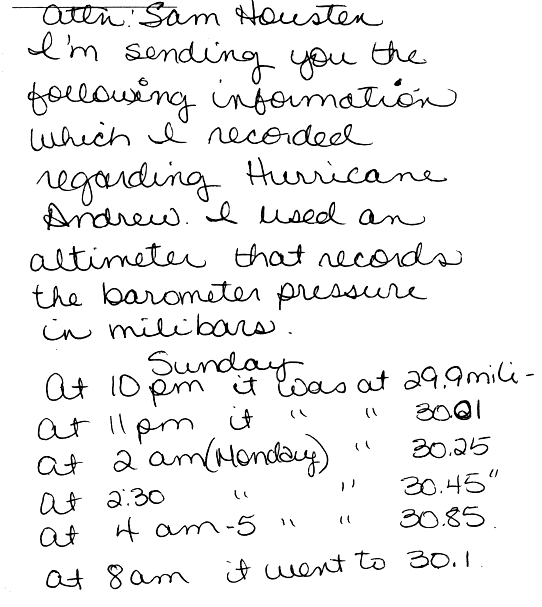 attn: Sam Housten
I'm sending you the
following information
which I recorded
regarding Hurricane
Andrew. I used an
altimeter that records
the barometer pressure
in milibars.
Sunday
at 10 pm it was at 29.9 mili-
at 11 pm it " " 30.01
at 2 am (Monday) " 30.25
at 2:30 " " 30.45"
at 4 am-5 " " 30.85.
at 8am it went to 30.1.